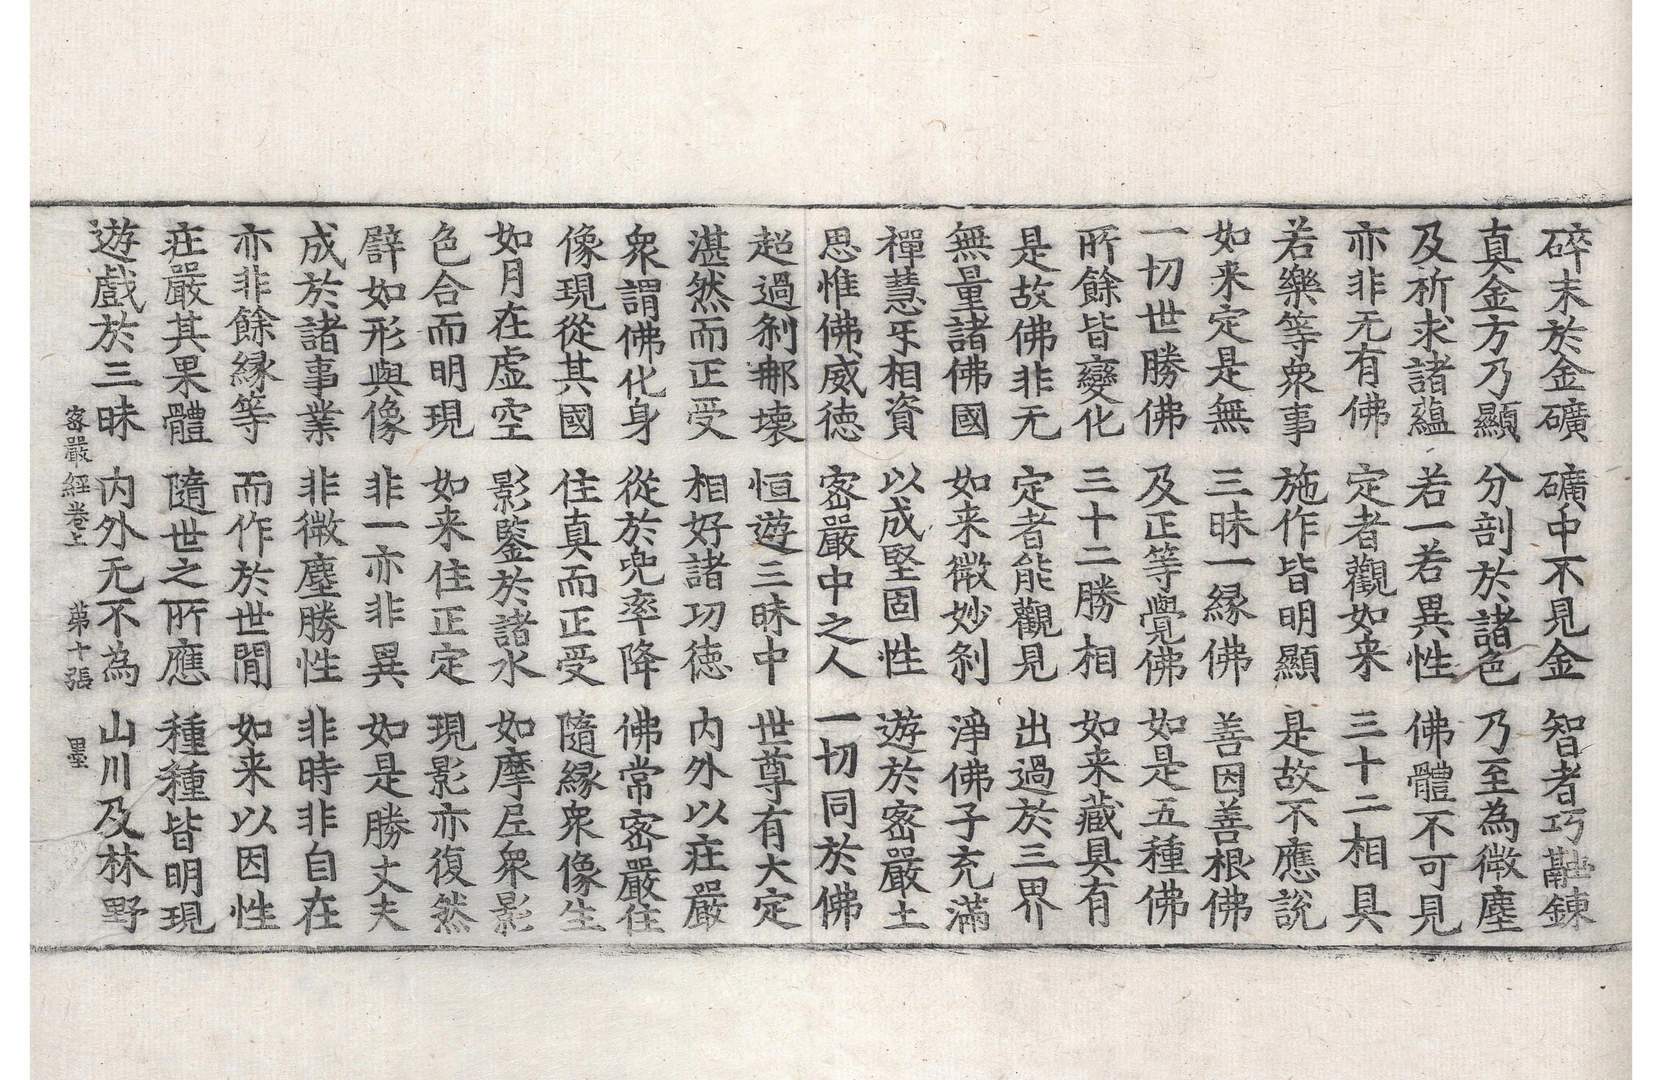 碎末於金礦 礦中不見金 智者巧融鍊
真金方乃顯 分剖於諸色 乃至為微塵
及析求諸蘊 若一若異性 佛體不可見
亦非无有佛 定者觀如来 三十二相具
若樂等衆事 施作皆明顯 是故不應說
如来定是無 三昧一緣佛 善因善根佛
一切世勝佛 及正等覺佛 如是五種佛
所餘皆變化 三十二勝相 如来藏具有
是故佛非无 定者能觀見 出過於三界
無量諸佛國 如来微妙刹 淨佛子充滿
禪慧互相資 以成堅固性 遊於密嚴土
思惟佛威徳 密嚴中之人 一切同於佛
超過刹那壞 恒遊三昧中 世尊有大定
湛然而正受 相好諸功徳 內外以庄嚴
衆謂佛化身 從於兜率降 佛常密嚴住
像現從其國 住真而正受 隨緣衆像生
如月在虛空 影鑒於諸水 如摩尼衆影
色合而明現 如来住正定 現影亦復然
譬如形與像 非一亦非異 如是勝丈夫
成於諸事業 非微塵勝性 非時非自在
亦非餘緣等 而作於世間 如来以因性
庄嚴其果體 隨世之所應 種種皆明現
遊戲於三昧 內外无不為 山川及林野
密嚴經卷上 第十張 墨